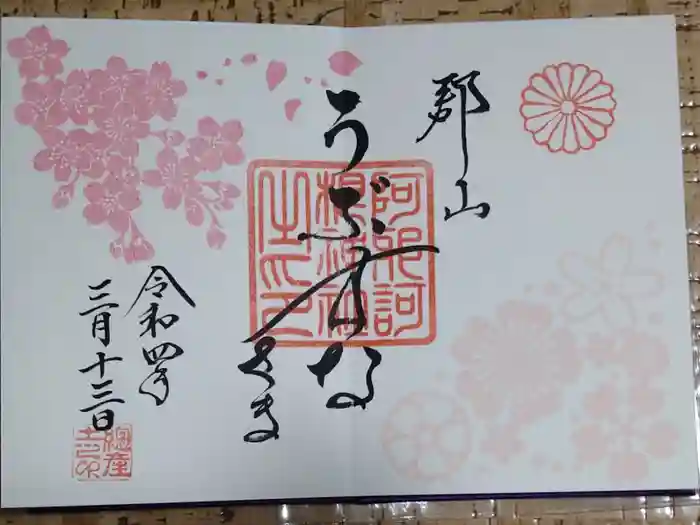 郡山
うぶすな
さま
阿邪訶
根神社
之印
令和四年
三月十三日